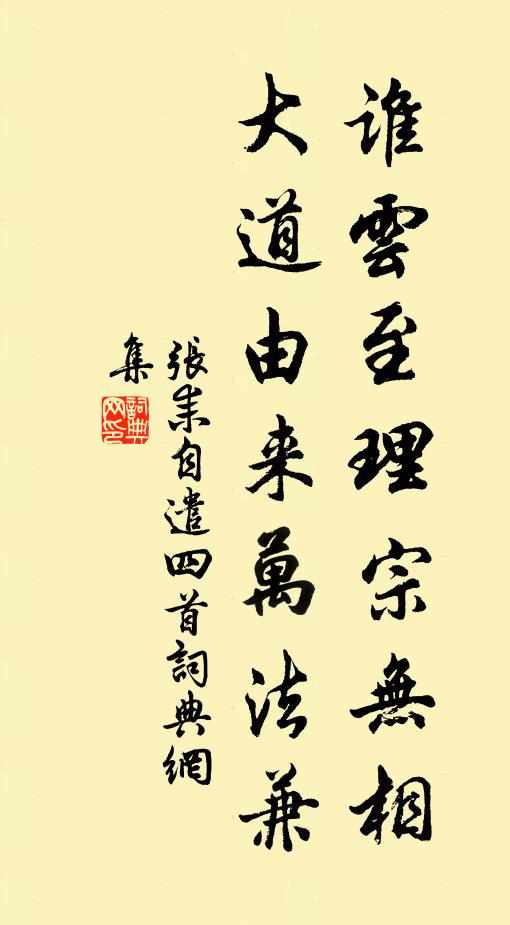 誰雲至理宗無相
大道由来萬法兼
張耒自遣四首詞典網
集
詞典網印